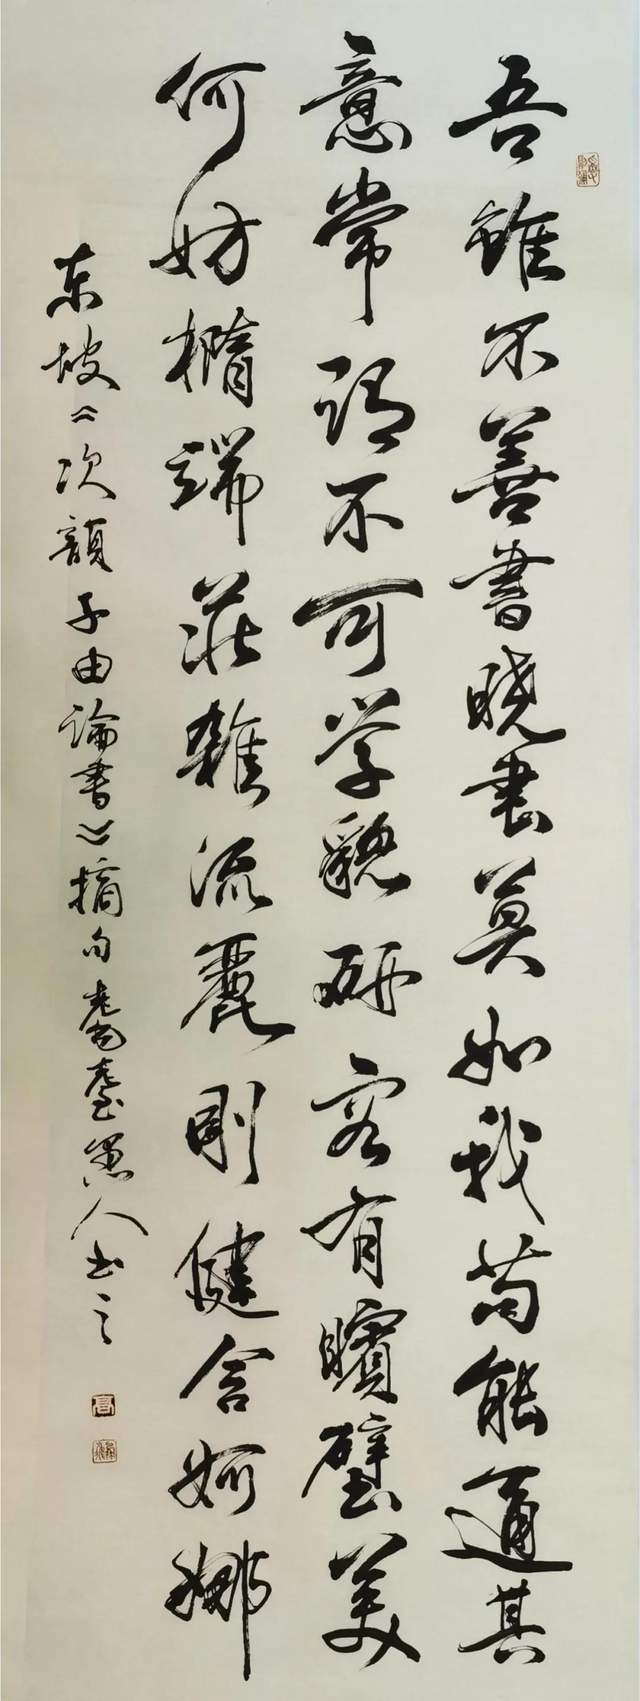 吾雖不善書曉書莫如我苟能通其
意常谓不可学貌妍容有矉璧美
何妨橢端莊雜流麗剛健含婀娜
东坡《次韻子由論書》摘句愚人书之